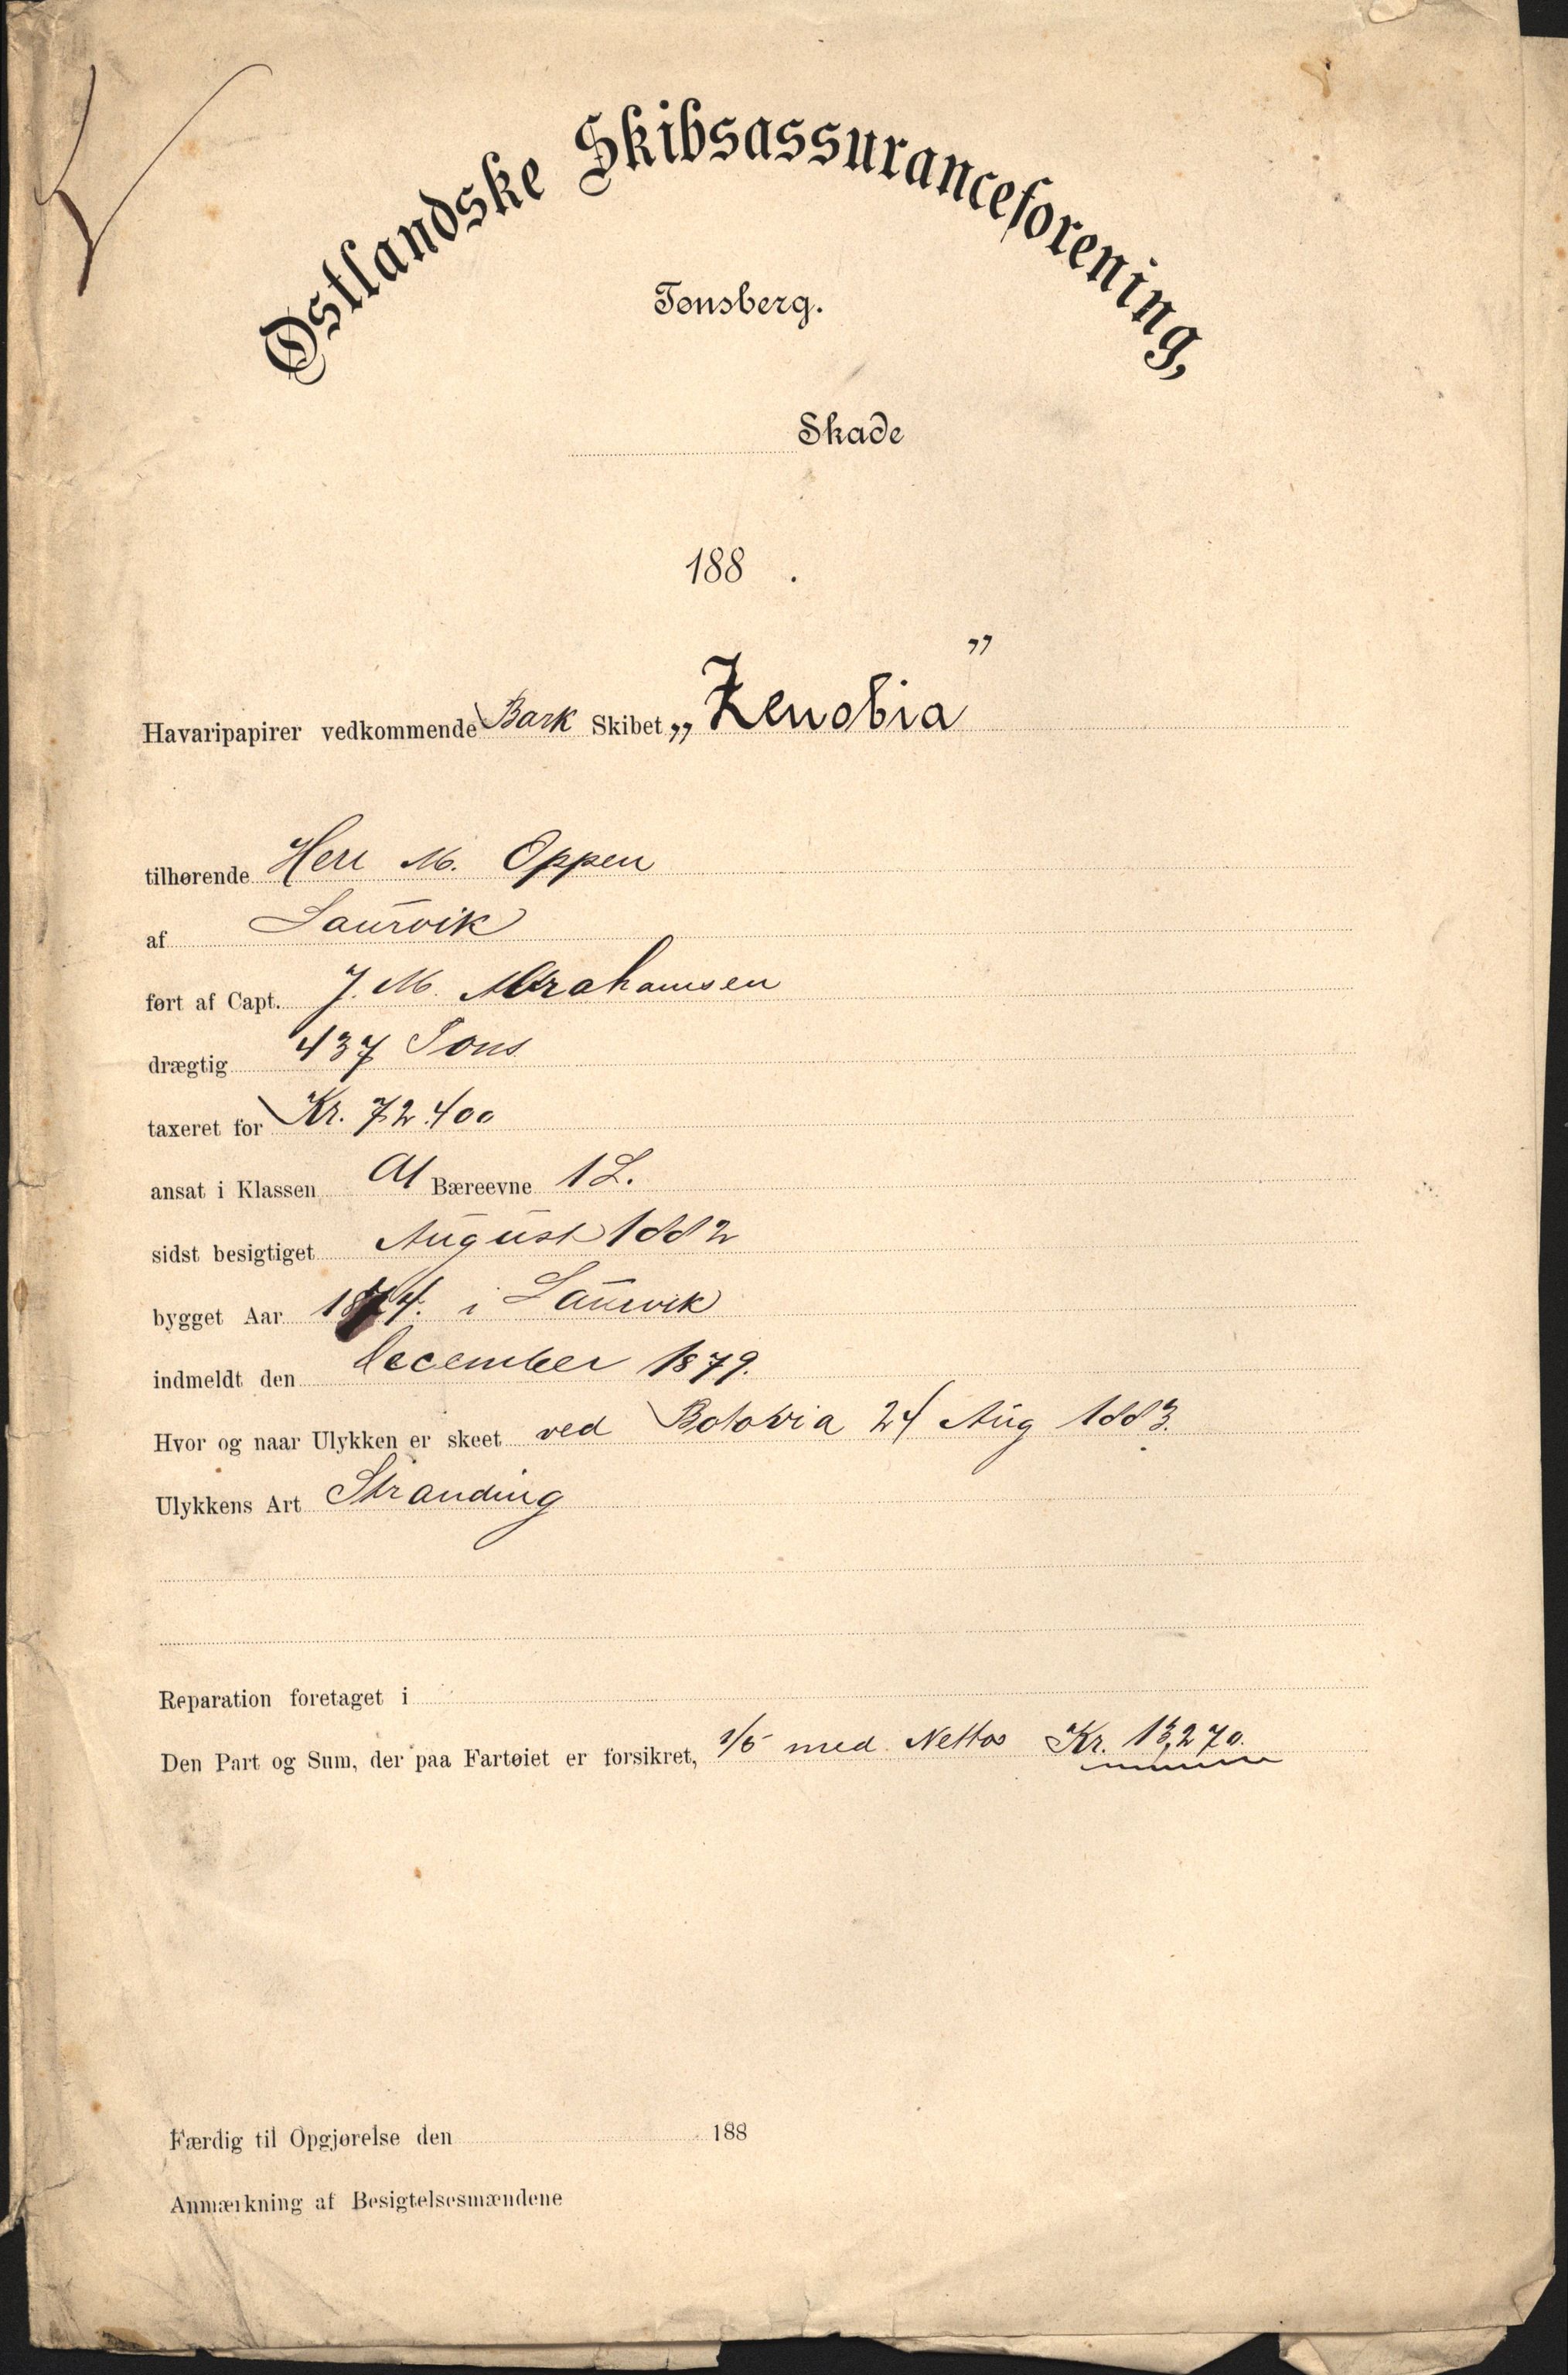 Østlandske Skibsassuranceforening,
Tønsberg.
Skade
188 .
Havaripapirer vedkommende Bark Skibet „Zenobia”
tilhørende Herr M. Oppen
af Laurvik
ført af Capt. J. M. Abrahamsen
drægtig 437 Tons
taxeret for Kr. 72.400
ansat i Klassen A1 Bæreevne 1 L.
sidst besigtiget August 1882
bygget Aar 1874. i Laurvik
indmeldt den December 1879.
Hvor og naar Ulykken er skeet ved Batavia 24 Aug 1883.
Ulykkens Art Stranding
Reparation foretaget i
Den Part og Sum, der paa Fartøiet er forsikret, 1/5 med Netto Kr. 13,270.
Færdig til Opgjørelse den 188
Anmærkning af Besigtelsesmændene